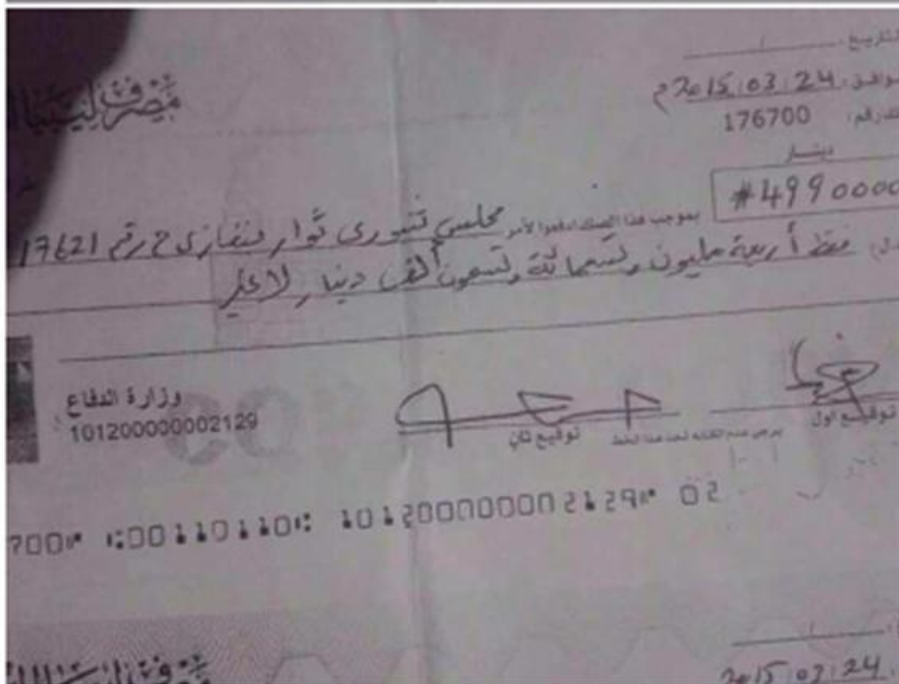 التاريخ: / /
الموافق: 2015/03/24 م
مصرف ليبيا
176700
دينار
#4990000
بموجب هذا الصك ادفعوا لأمر مجلس شورى ثوار بنغازي ح رقم 17621
فقط أربعة مليون وتسعمائة وتسعون ألف دينار لا غير
وزارة الدفاع
101200000002129
توقيع أول
توقيع ثان
يرجى عدم الكتابة تحت هذا الخط
700⑈ ⑆001101101⑆ 101200000002129⑈ 02
2015/03/24